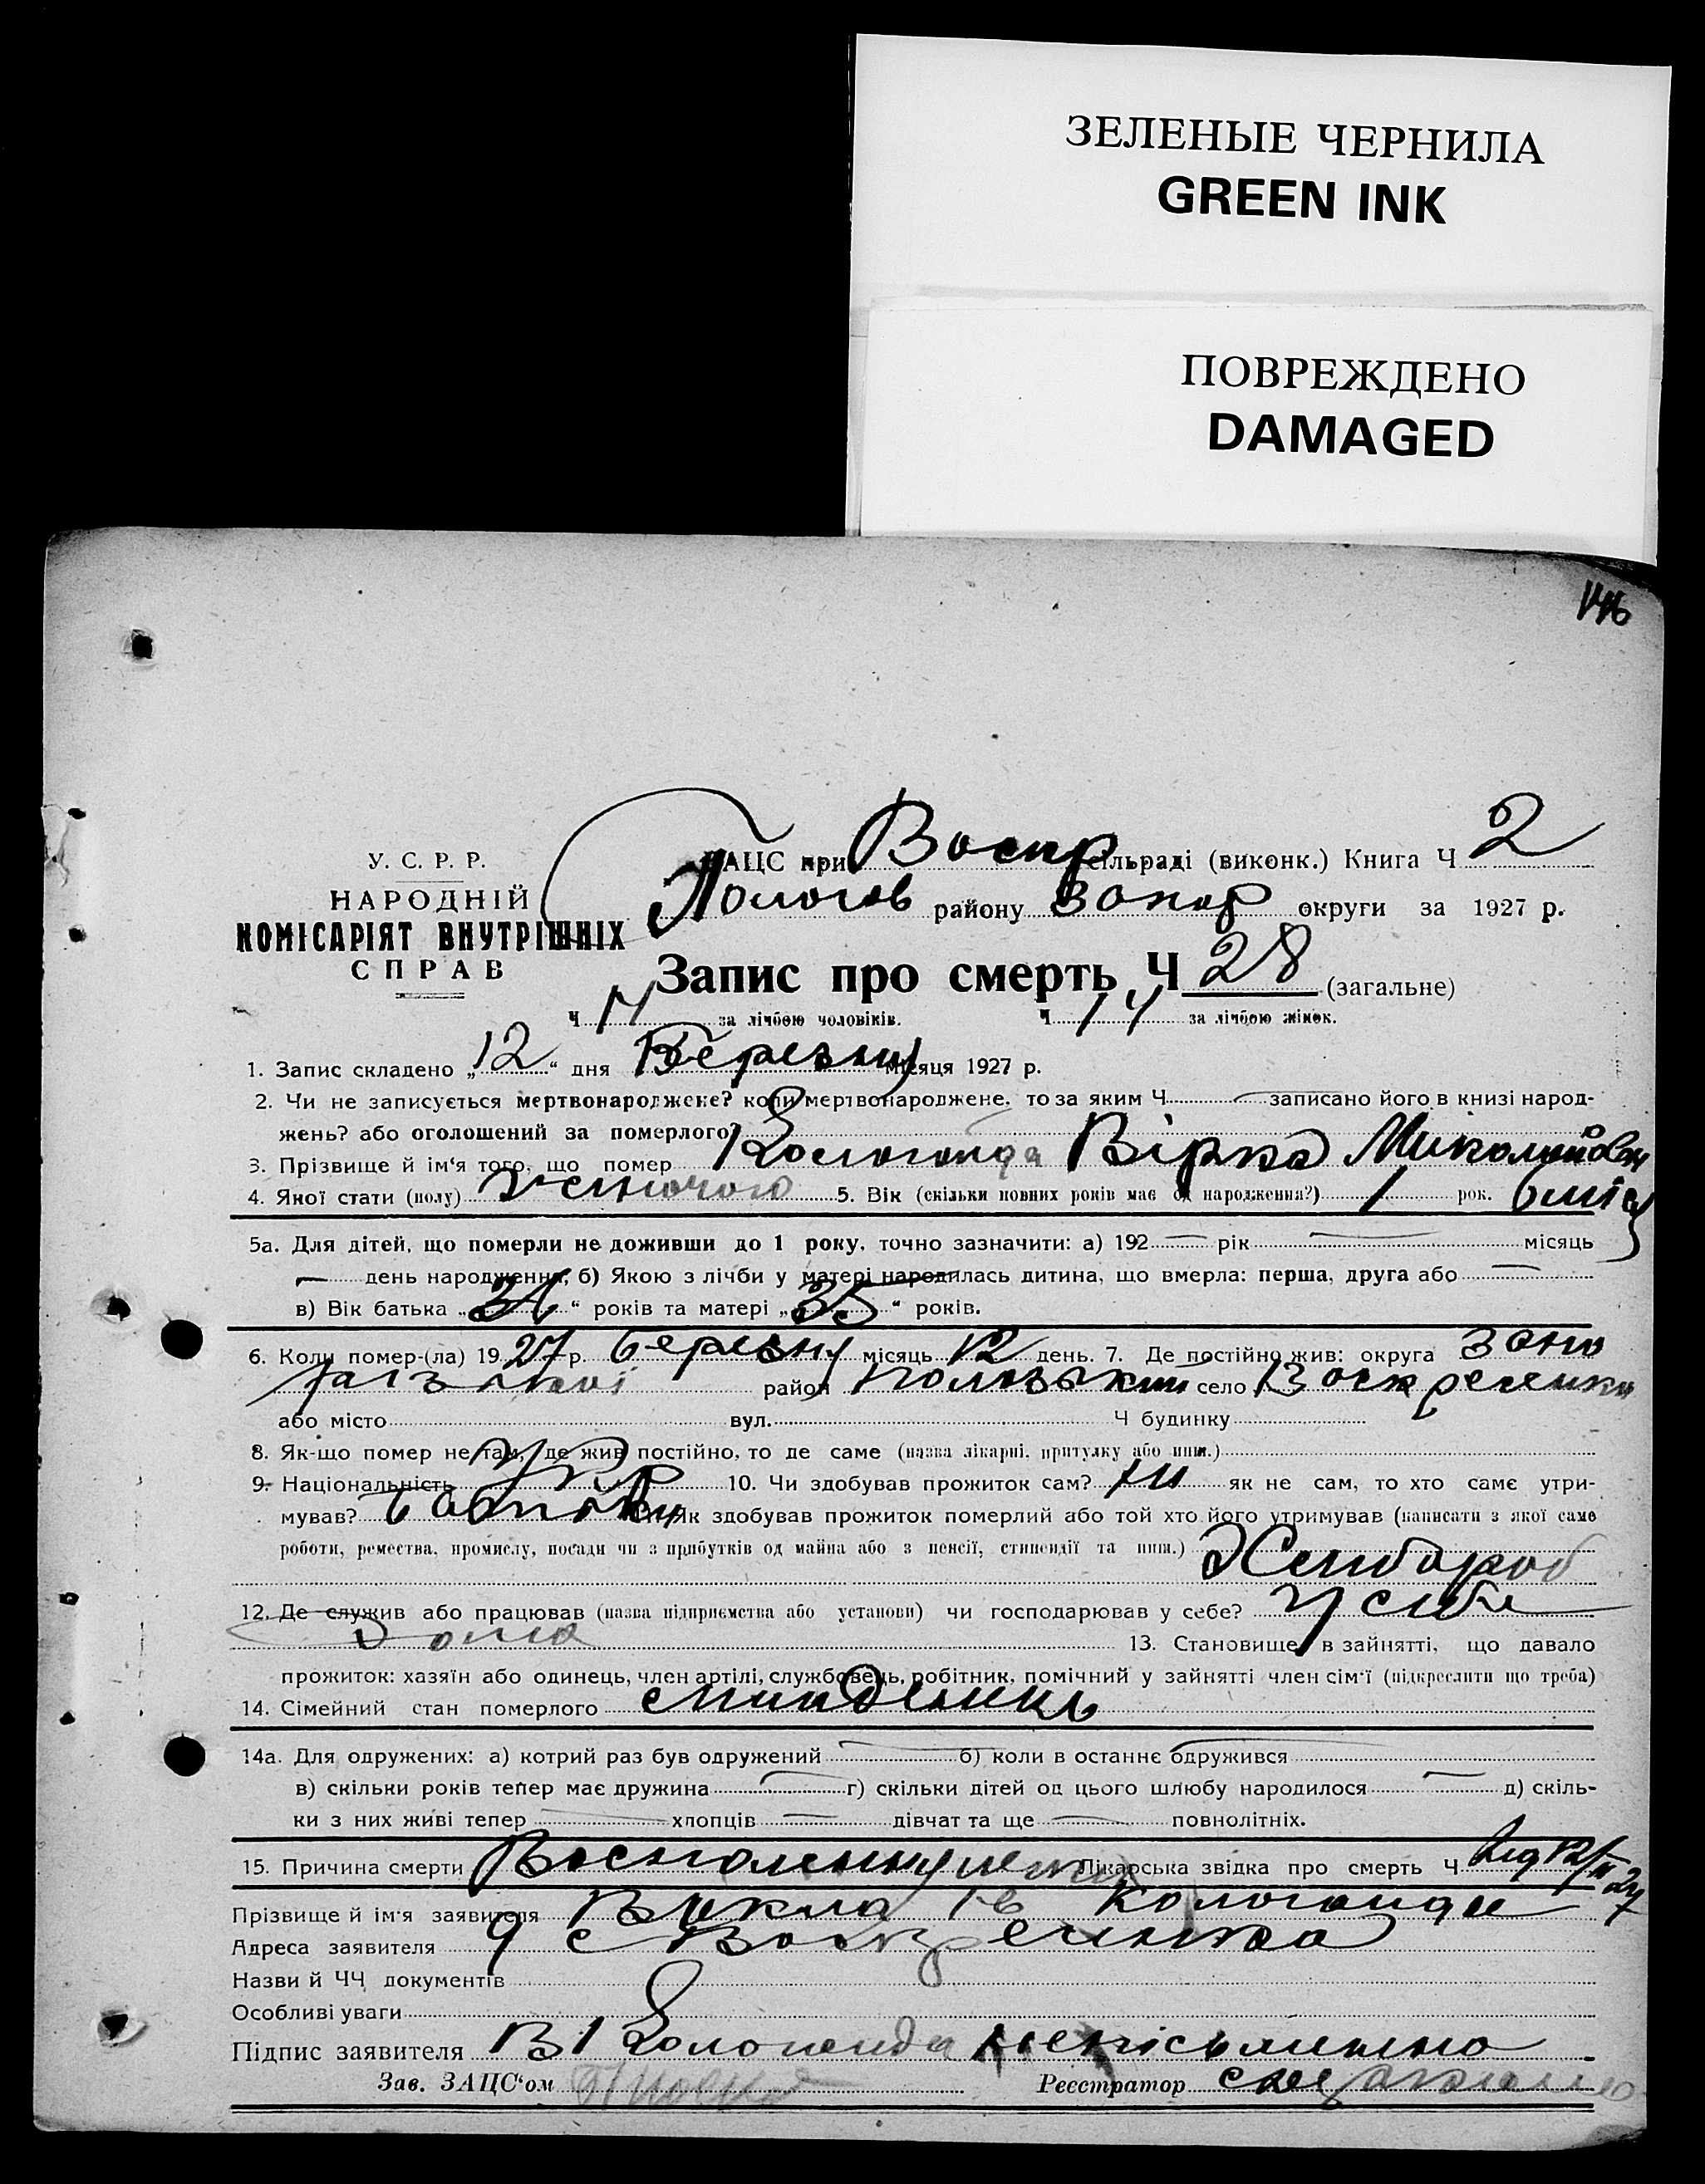 ЗЕЛЕНЫЕ ЧЕРНИЛА
GREEN INK
ПОВРЕЖДЕНО
DAMAGED
146
У. С. Р. Р.
НАРОДНІЙ
КОМІСАРІЯТ ВНУТРІШНІХ
СПРАВ
ЗАЦС при Воскр сільраді (виконк.) Книга Ч 2
Пологов району Запор округи за 1927 р.
Запис про смерть Ч 28 (загальне)
Ч 14 за лічбою чоловіків. Ч 14 за лічбою жінок.
1. Запис складено „12“ дня Березня місяця 1927 р.
2. Чи не записується мертвонароджене? коли мертвонароджене, то за яким Ч записано його в книзі народ-
жень? або оголошений за померлого?
3. Прізвище й ім‘я того, що помер Кологойда Вірка Миколаївн
4. Якої стати (полу) Жіночого 5. Вік (скільки повних років має од народження?) 1 рок. 6 міс
5а. Для дітей, що померли не доживши до 1 року, точно зазначити: а) 192 — рік — місяць
— день народження; б) Якою з лічби у матері народилась дитина, що вмерла: перша, друга або —
в) Вік батька „ “ років та матері „35“ років.
6. Коли помер-(ла) 1927 р. березня місяць 12 день. 7. Де постійно жив: округа Запо
район село Воскресенка
або місто вул. Ч будинку
8. Як-що помер не там, де жив постійно, то де саме (назва лікарні, притулку або инш.)
9. Національність Укр 10. Чи здобував прожиток сам? ні як не сам, то хто саме утри-
мував? батьки Як здобував прожиток померлий або той хто його утримував (написати з якої саме
роботи, ремества, промислу, посади чи з прибутків од майна або з пенсії, стипендії та инш.) Хлібороб
12. Де служив або працював (назва підприємства або установи) чи господарював у себе? У себе
Дома 13. Становище в зайнятті, що давало
прожиток: хазяїн або одинець, член артілі, службовець, робітник, помічний у зайнятті член сім‘ї (підкреслити що треба)
14. Сімейний стан померлого
14а. Для одружених: а) котрий раз був одружений — б) коли в останнє одружився —
в) скільки років тепер має дружина — г) скільки дітей од цього шлюбу народилося — д) скіль-
ки з них живі тепер — хлопців — дівчат та ще — повнолітніх.
15. Причина смерти Лікарська звідка про смерть Ч
Прізвище й ім‘я заявителя
Адреса заявителя с Воскресенка
Назви й ЧЧ документів
Особливі уваги
Підпис заявителя В І Кологойда неписьменна
Зав. ЗАЦС‘ом Реєстратор